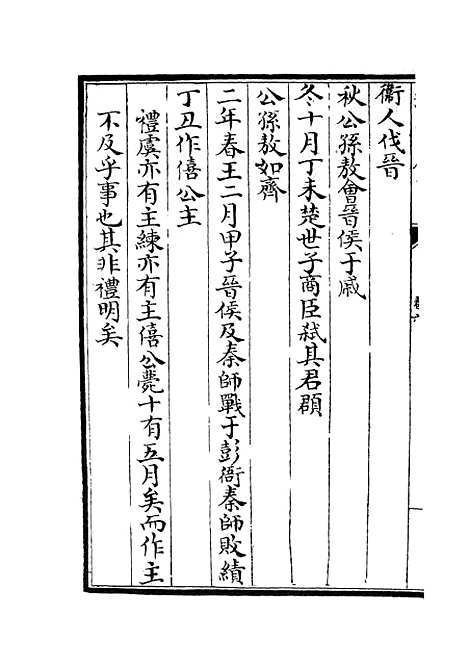 衞人伐晉
秋公孫敖會晉侯于戚
冬十月丁未楚世子商臣弑其君頵
公孫敖如齊
二年春王二月甲子晉侯及秦師戰于彭衙秦師敗績
丁丑作僖公主
禮虞亦有主練亦有主僖公薨十有五月矣而作主
不及乎事也其非禮明矣